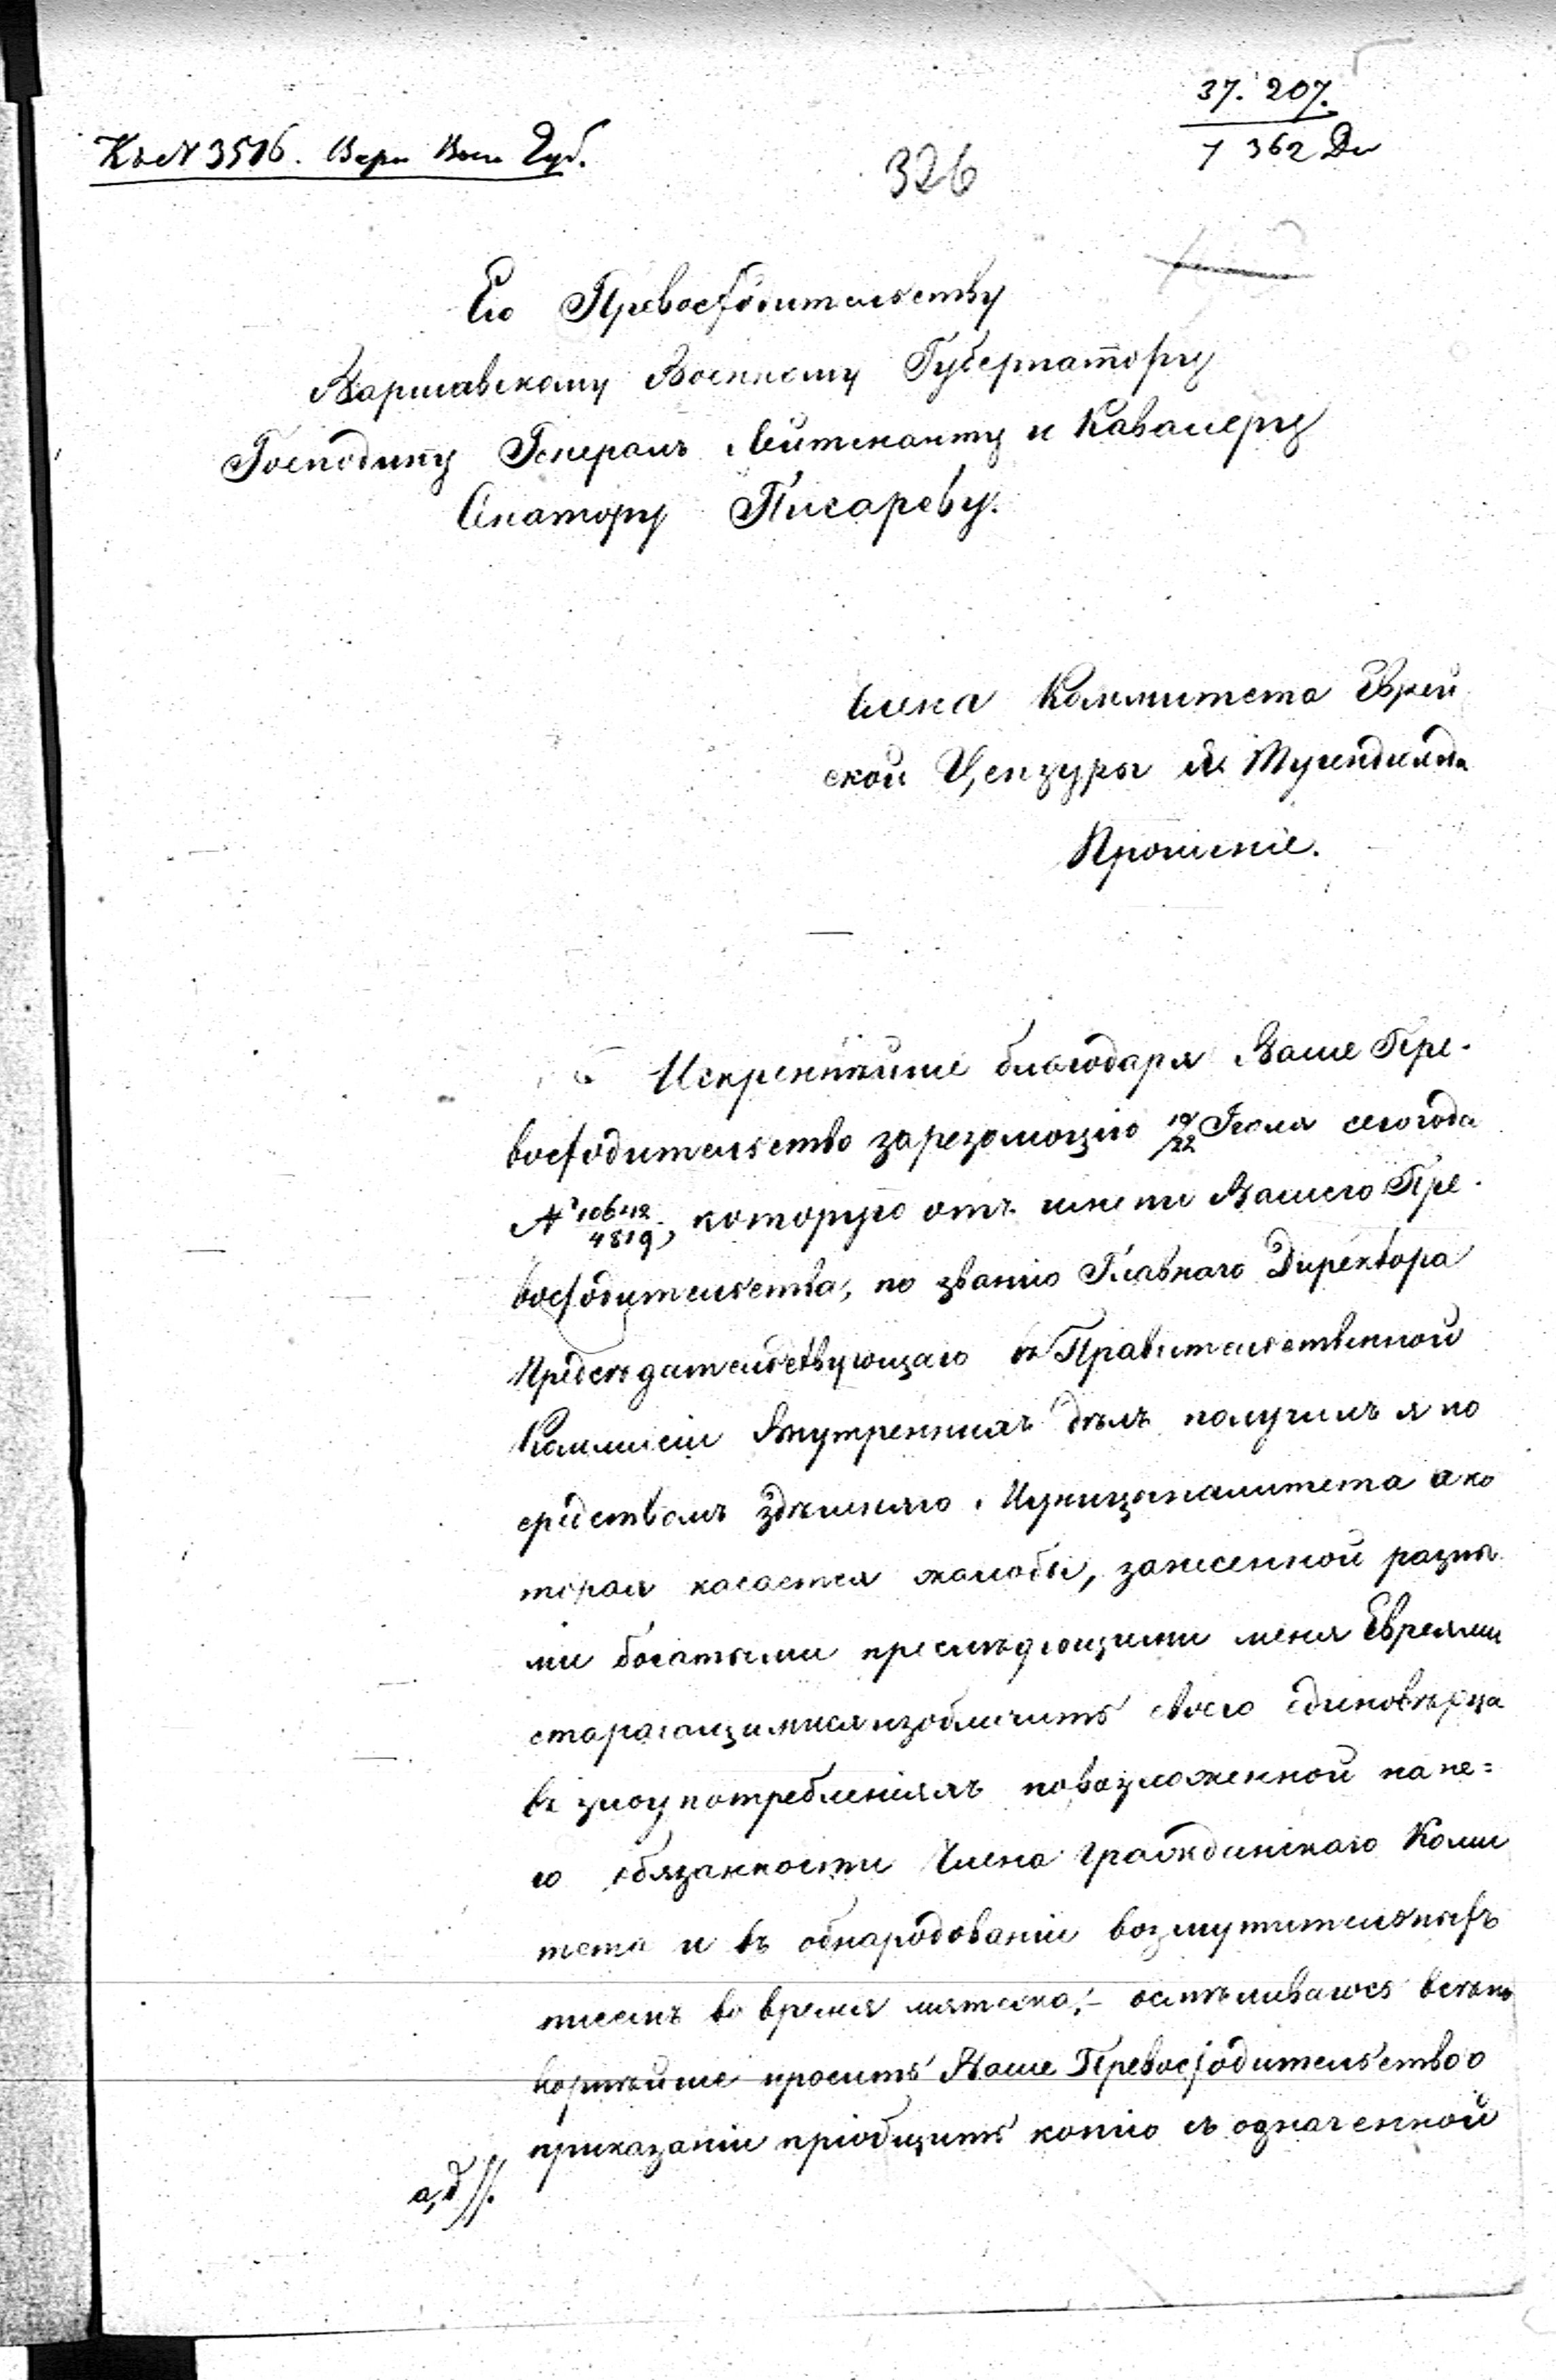 37. 207.
7 362 Дн
Къ № 3516. Варш Воен Губ.
326
Его Превосходительству
Варшавскому Военному Губернатору
Господину Генералъ Лейтенанту и Кавалеру
Сенатору Писареву.
Члена Коммитета Еврей
ской Цензуры Я. Тугендгольда
Прошеніе.
Искреннѣйше благодаря Ваше Пре-
восходительство за резолюцію 10/22 Іюля сего года
№ 10642/4819, которую отъ имени Вашего Пре-
восходительства, по званію Главнаго Директора
Предсѣдательствующаго въ Правительственной
Коммисіи Внутреннихъ дѣлъ получилъ я по
средствомъ здѣшняго Муниципалитета а ко
торая касается жалобы, занесенной разны
ми богатыми преслѣдующими меня Евреями
старающимися изобличить своего единовѣрца
въ злоупотребленіяхъ по возложенной на не=
го обязанности Члена Гражданскаго Коми
тета и въ обнародованіи возмутительныхъ
писемъ во время мятежа,- осмѣливаюсь всепо
корнѣйше просить Ваше Превосходительство о
приказаніи пріобщить копію съ означенной